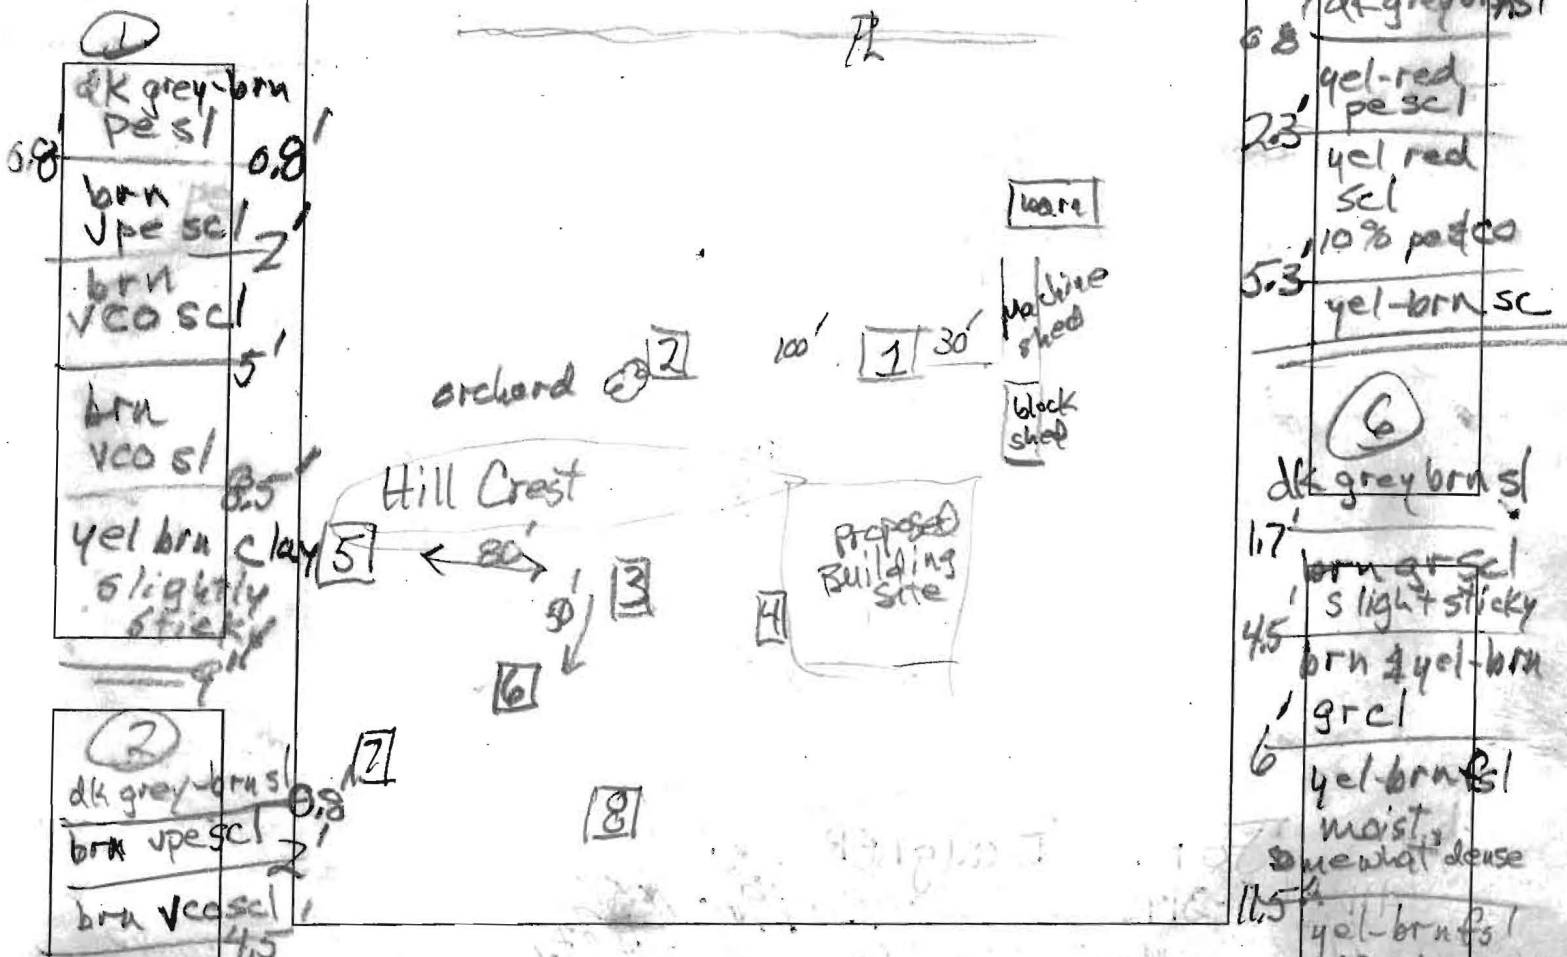 1
dk grey-brn
pe sl
0.8' 0.8'
brn
vpe scl
2'
brn
vco scl
5'
brn
vco sl
8.5'
yel brn clay
slightly
sticky
9'
2
dk grey-brn sl
0.8'
brn vpe scl
2'
brn vco scl
4.5'
PL
barn
Machine
shed
2
100'
1
30'
orchard
block
shed
Hill Crest
Proposed
Building
Site
5
80'
3
50'
4
6
7
8
dk grey brn
0.8
yel-red
pe scl
2.3'
yel red
scl
10% pe & co
5.3'
yel-brn sc
6
dk grey brn sl
1.7'
brn gr scl
slight sticky
4.5'
brn & yel-brn
gr cl
6'
yel-brn fsl
moist,
somewhat dense
11.5'
yel-brn fsl